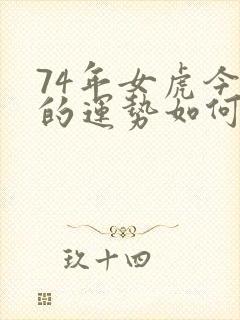 74年女虎今
的運勢如何
玖十四